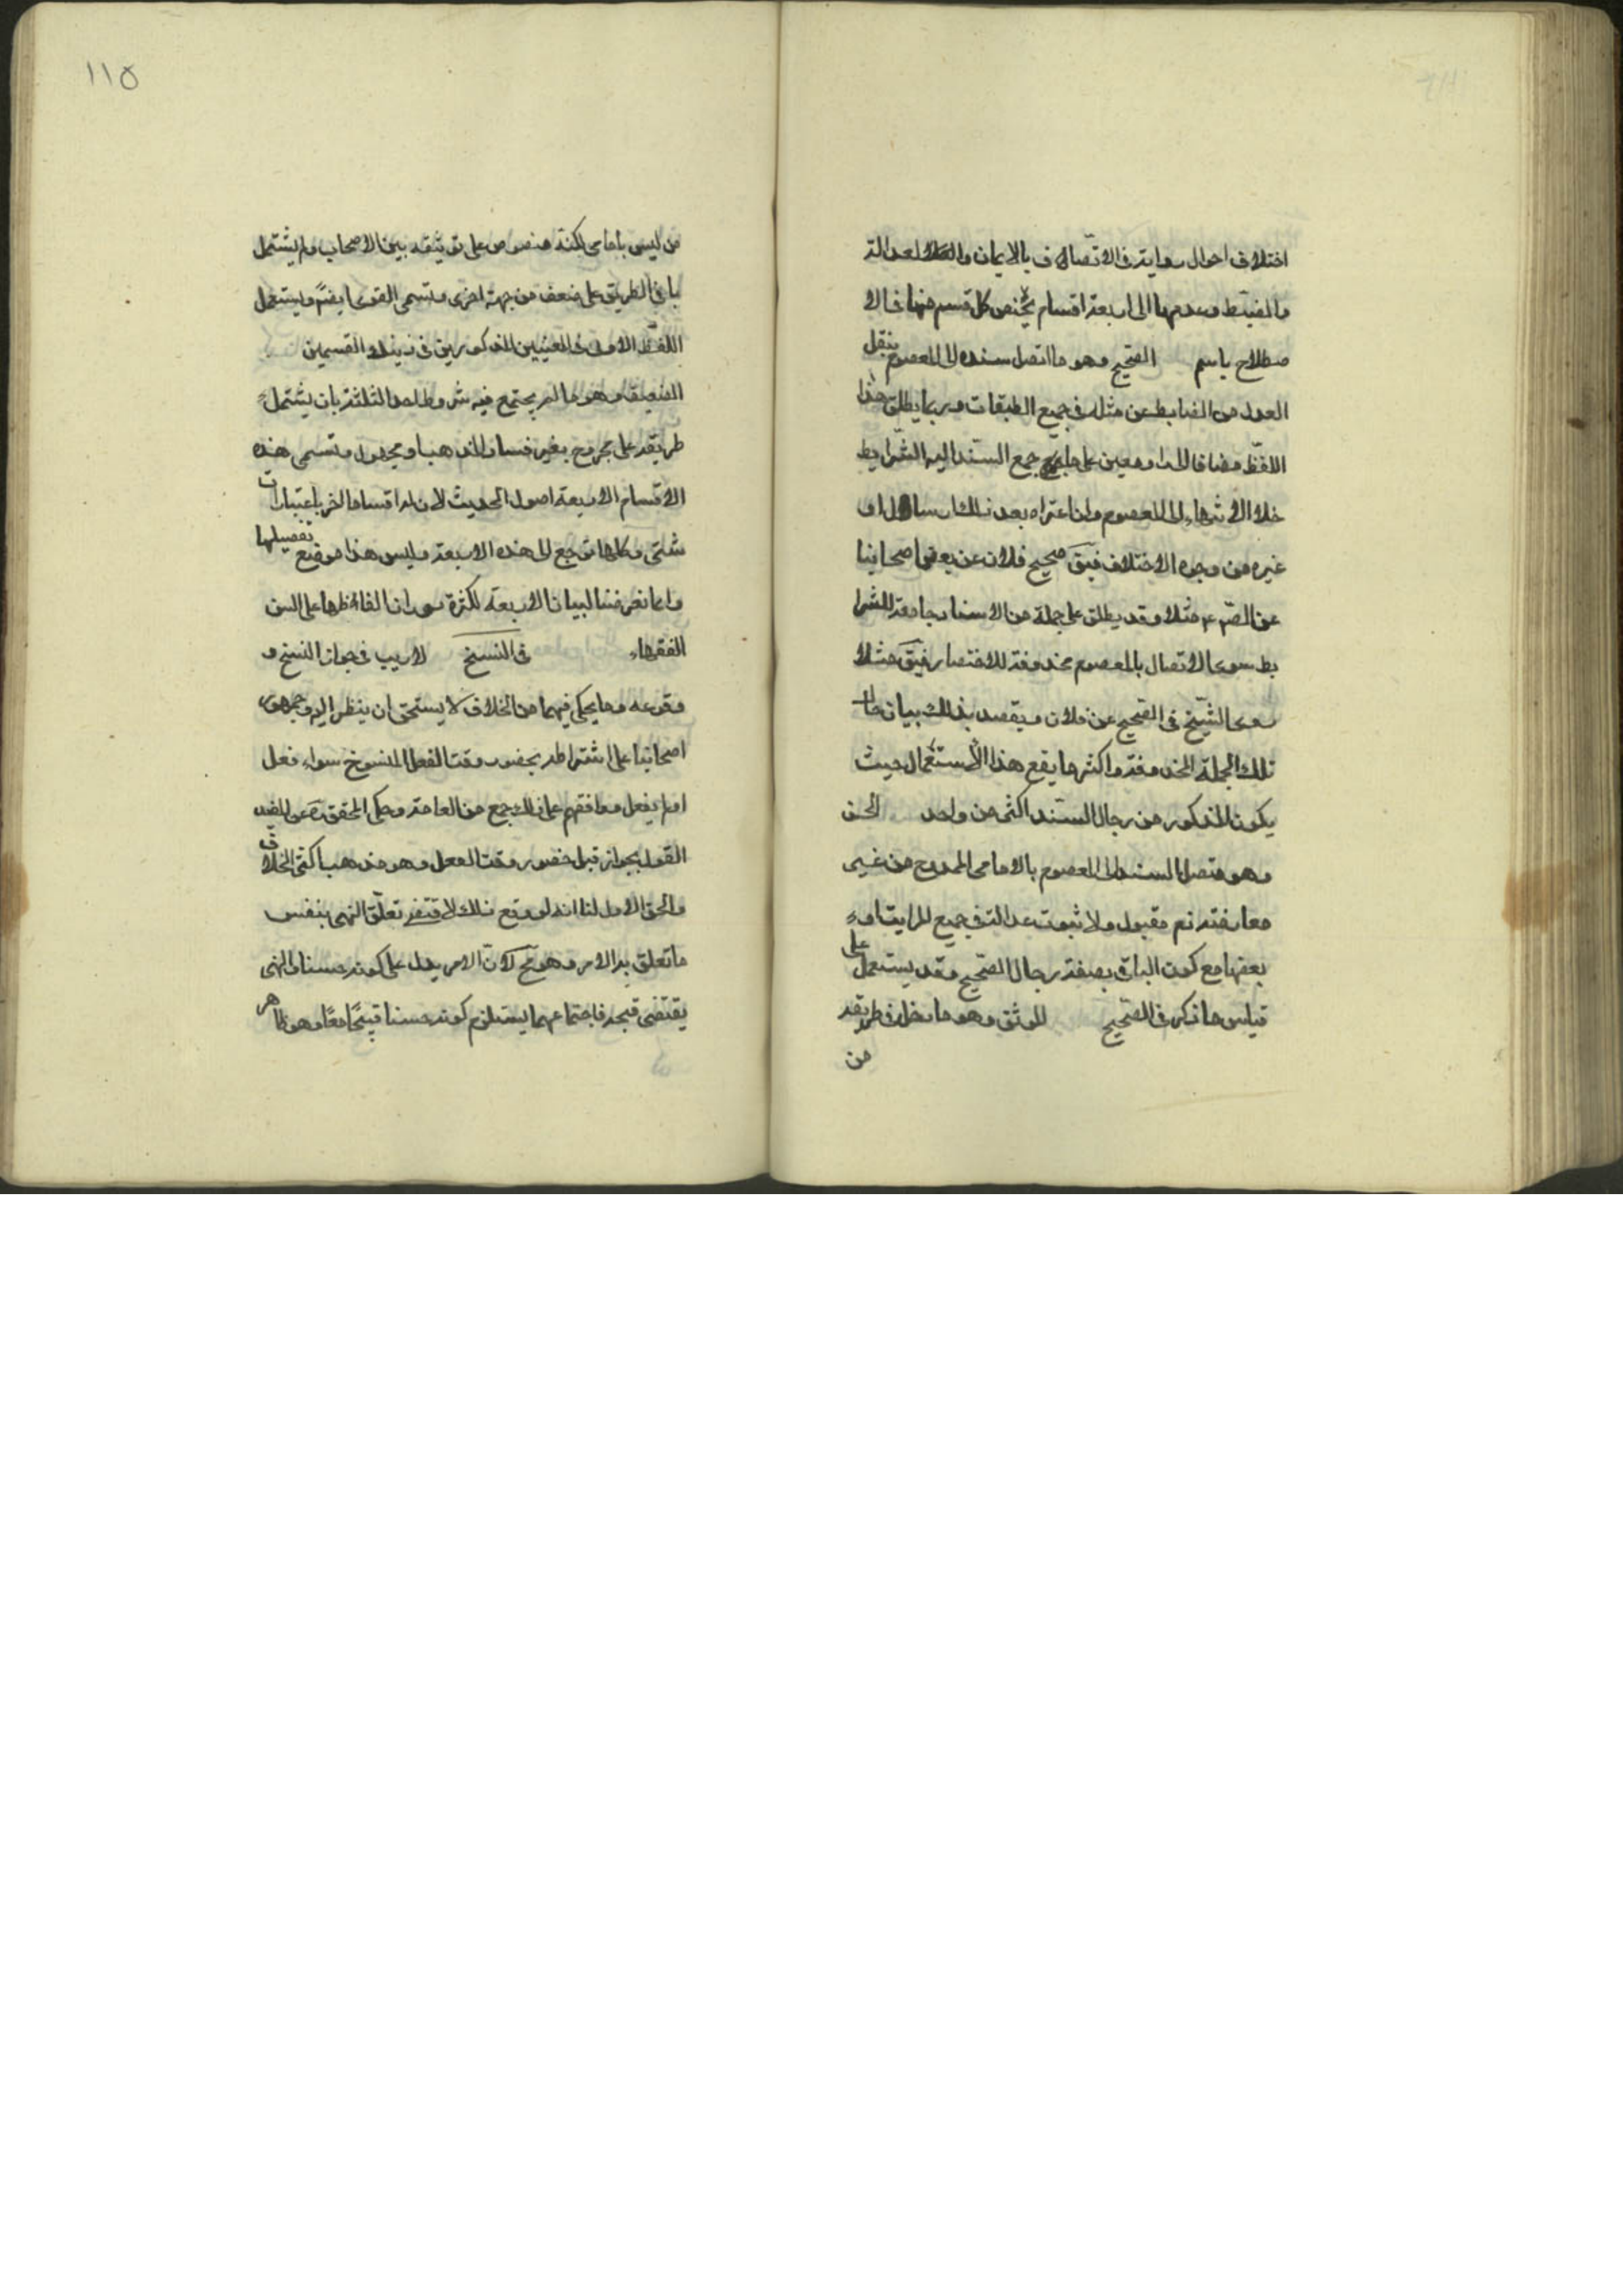 اختلاف احوال رواته فى الاتصاف بالايمان والعدالة
والضبط وعدمها الى اربعة اقسام يختص كل قسم منها فى الا
صطلاح باسم الصحيح وهو ما اتصل سنده الى المعصوم بنقل
العدل الضابط عن مثله فى جميع الطبقات وربما يطلق هذا
اللفظ مضافا الى راو معين على ما جمع السند اليه الشرايط
خلا الانتهاء الى المعصوم وان اعتراه بعد ذلك ارسال او
غيره من وجوه الاختلاف فيق صحيح فلان عن بعض اصحابنا
عن الصم عم مثلا وقد يطلق على جملة من الاسناد جامعة للشرا
يط سوى الاتصال بالمعصوم محذوفة للاختصار فيق مثلا
روى الشيخ فى الصحيح عن فلان ويقصد بذلك بيان حال
تلك الجملة المحذوفة واكثر ما يقع هذا الاستعمال حيث
يكون المذكور من رجال السند اكثر من واحد الحسن
وهو متصل السند الى المعصوم بالامامى الممدوح من غير
معارضة ذم مقبول ولا ثبوت عدالته فى جميع المراتب او
بعضها مع كون الباقى بصفة رجال الصحيح وقد يستعمل على
قياس ما ذكر فى الصحيح الموثق وهو ما دخل فى طريقه
من
١١٥
من ليس بامامى لكنه منصوص على توثيقه بين الاصحاب ولم يشتمل
باقى الطريق على ضعف من جهة اخرى وتسمى القوى ايضا ويستعمل
اللفظ الاول فى المعنيين المذكورين فى ذينك القسمين
الضعيف وهو ما لم يجتمع فيه شروط احد الثلثة بان يشتمل
طريقه على مجروح بغير فساد المذهب او مجهول وتسمى هذه
الاقسام الاربعة اصول الحديث لان له اقساما اخر باعتبارات
شتى وكلها ترجع الى هذه الاربعة وليس هذا موضع تفصيلها
وانما تعرضنا لبيان الاربعة لكثرة دوران الفاظها على السن
الفقهاء فى النسخ لا ريب فى جواز النسخ و
وقوعه وما يحكى فيهما من الخلاف لا يستحق ان ينظر اليه وجمهور
اصحابنا على اشتراطه بحضور وقت الفعل المنسوخ سواء فعل
او لم يفعل ووافقهم على ذلك جمع من العامة وحكى المحقق ره عن المفيد
القول بجوازه قبل حضور وقت الفعل وهو مذهب اكثر الخلاف
والحق الاول لنا انه لو وقع ذلك لاقتضى تعلق النهى بنفس
ما تعلق به الامر وهو مح لان الامر يدل على كونه حسنا والنهى
يقتضى قبحه فاجتماعهما يستلزم كونه حسنا قبيحا معا وهو ظاهر